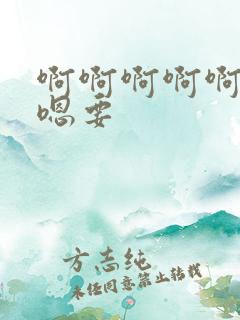 啊啊啊啊啊
嗯要
方志纯
未经同意禁止转载